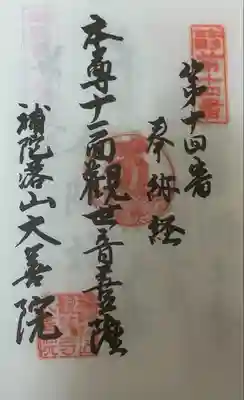 第十四番
奉納経
本尊十一面観世音菩薩
補陀落山大善院